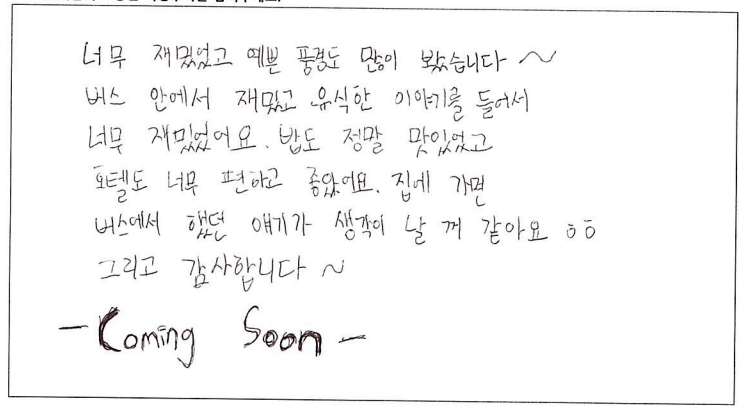 너무 재밌었고 예쁜 풍경도 많이 봤습니다 ~
버스 안에서 재밌고 유식한 이야기를 들어서
너무 재밌었어요. 밥도 정말 맛있었고
호텔도 너무 편하고 좋았어요. 집에 가면
버스에서 했던 얘기가 생각이 날 꺼 같아요 ㅎㅎ
그리고 감사합니다 ~
- Coming Soon -